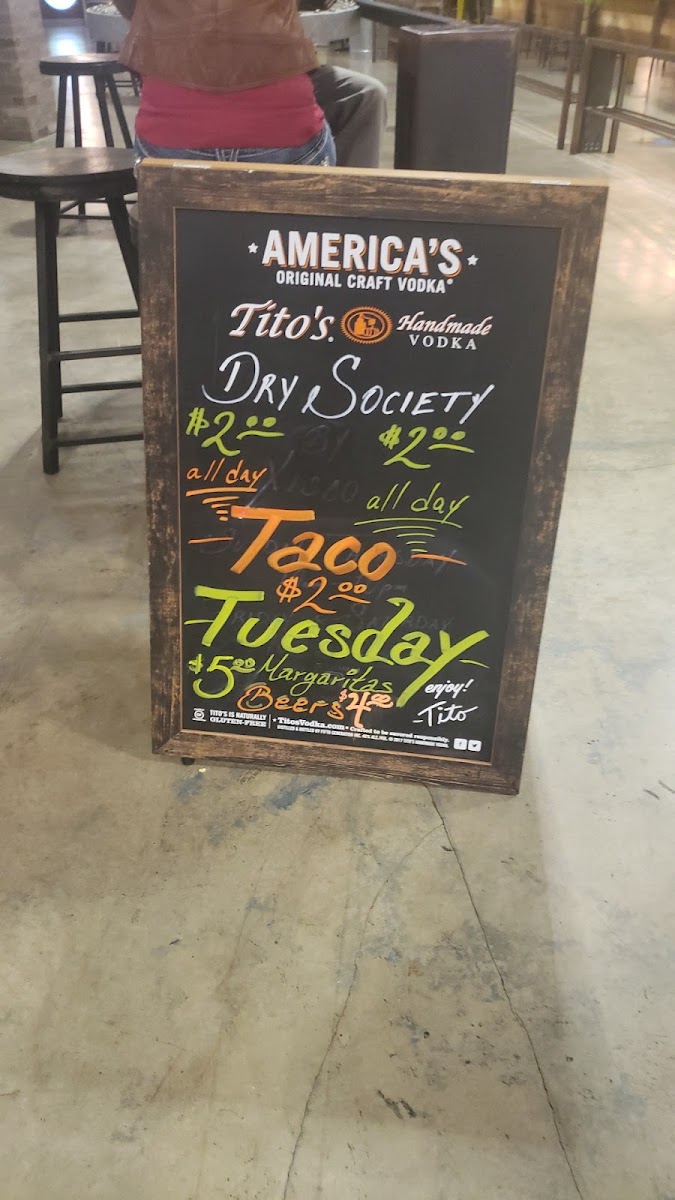 AMERICA'S
ORIGINAL CRAFT VODKA®
Tito's. Handmade
VODKA
DRY SOCIETY
$2.00 $2.00
all day all day
Taco
$2.00
Tuesday
$5.00 Margaritas
Beers $4.00
enjoy!
-Tito
TITO'S IS NATURALLY
GLUTEN-FREE
TitosVodka.com • Crafted to be savored responsibly.